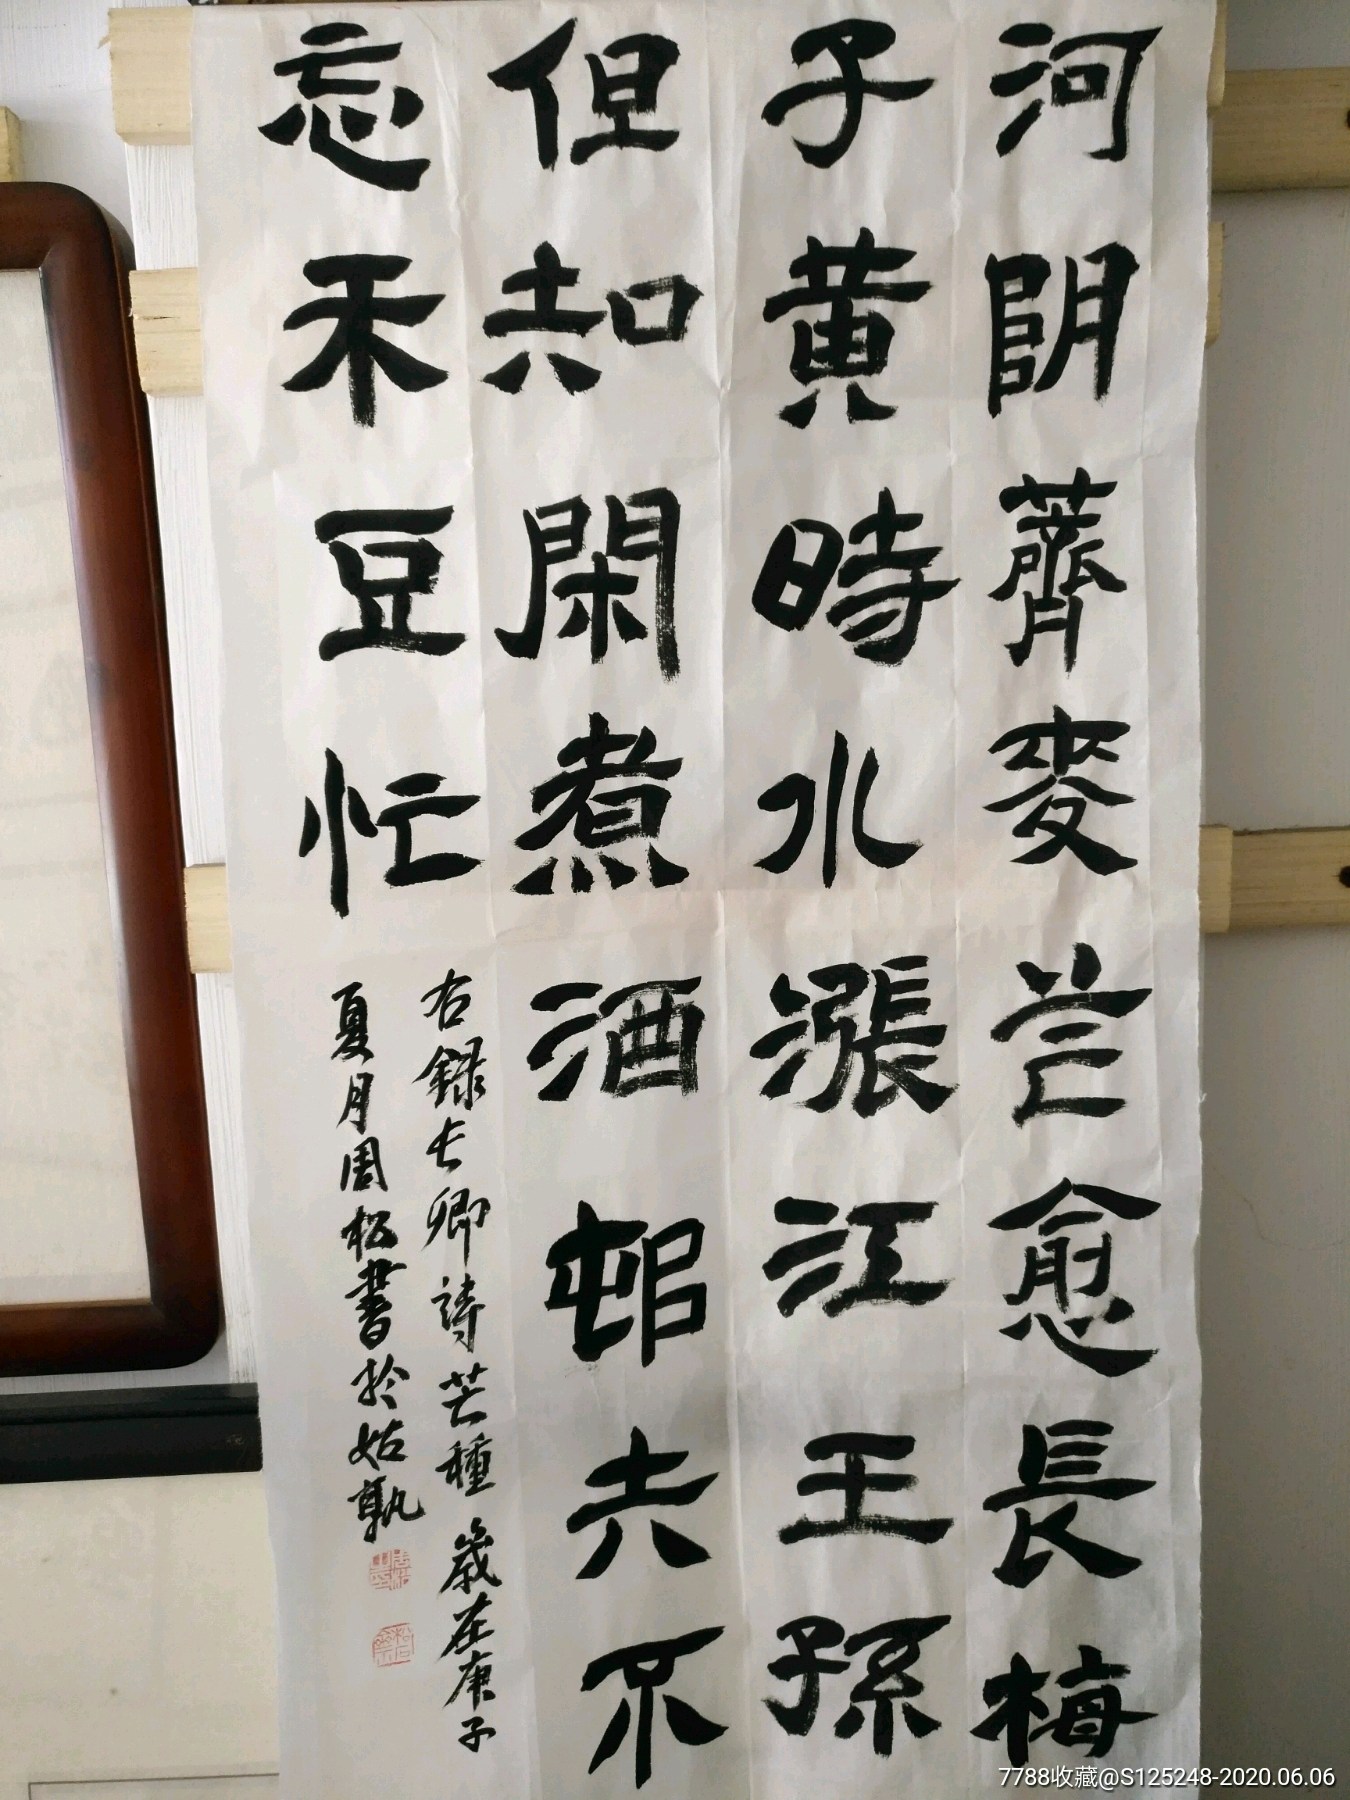 河阴薺麥芒愈長梅
子黄時水漲江王孫
但知閑煮酒邨夫不
忘禾豆忙
右録长卿詩芒種 歲在庚子
夏月周松書於姑孰
7788收藏@S125248-2020.06.06